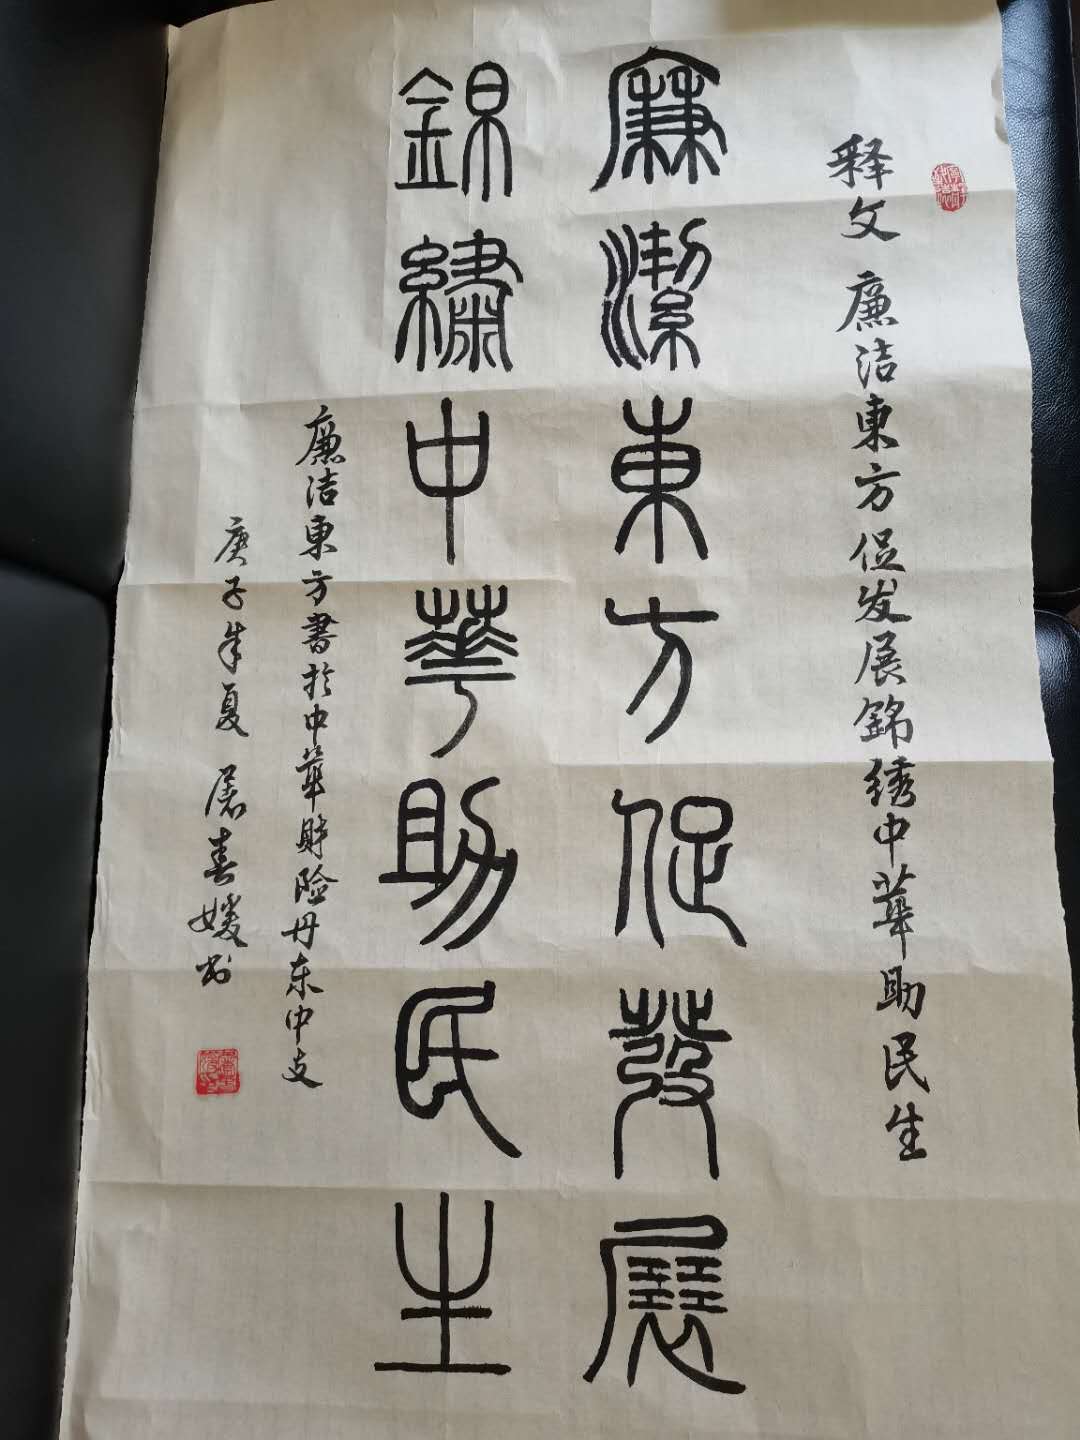 释文 廉洁東方促发展錦绣中華助民生
廉潔東方促發展
錦繡中華助民生
廉洁東方書於中華財险丹东中支
庚子年夏 屠春媛书